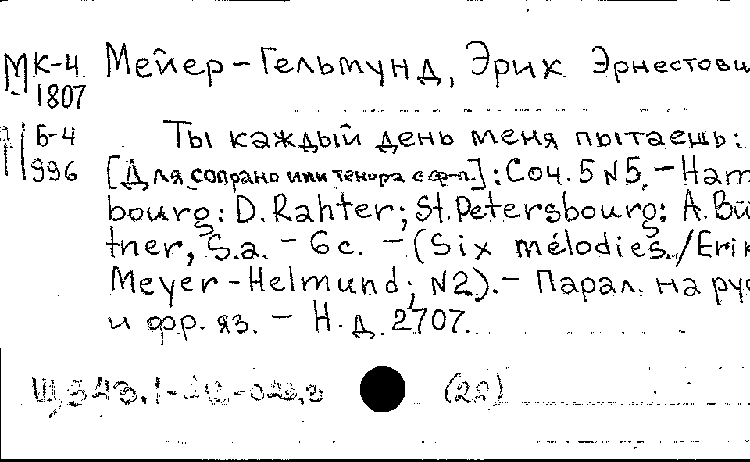 МК-4 Мейер-Гельмунд, Эрих Эрнестови
1807
Б-4 Ты каждый день меня пытаешь:
996 [Для сопрано или тенора с ф-п.]: Соч. 5 N5. - Ham
bourg: D. Rahter; St. Petersbourg: A. Bü
tner, S.a. - 6 с. - (Six mélodies / Erik
Meyer-Helmund; N2). - Парал. на рус
и фр. яз. - Н.д. 2707.
(22)